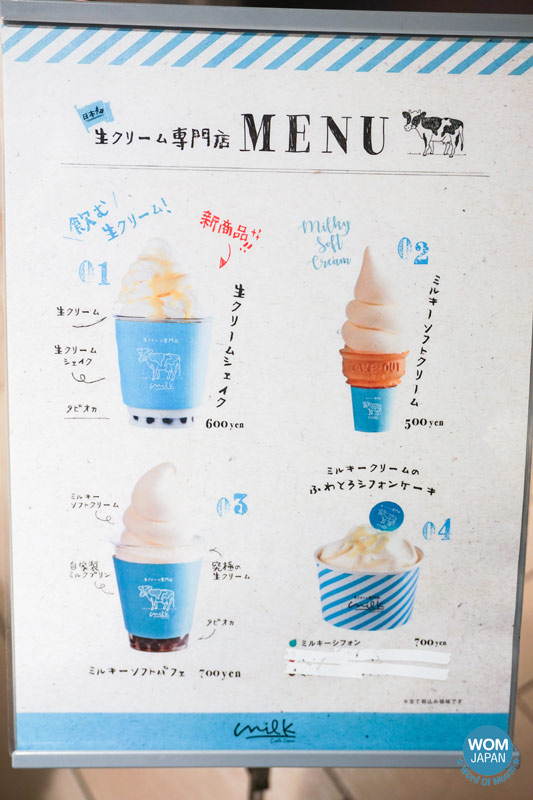 日本初
生クリーム専門店 MENU
飲む
生クリーム!
新商品!!
01
生クリーム
生クリーム
シェイク
タピオカ
生クリームシェイク
600yen
Milky
Soft
Cream
02
ミルキーソフトクリーム
500yen
03
ミルキー
ソフトクリーム
自家製
ミルクプリン
究極の
生クリーム
タピオカ
生クリーム専門店
milk
ミルキーソフトパフェ 700yen
ミルキークリームの
ふわとろシフォンケーキ
04
milk
ミルキーシフォン 700yen
※全て税込み価格です
milk
WOM
JAPAN